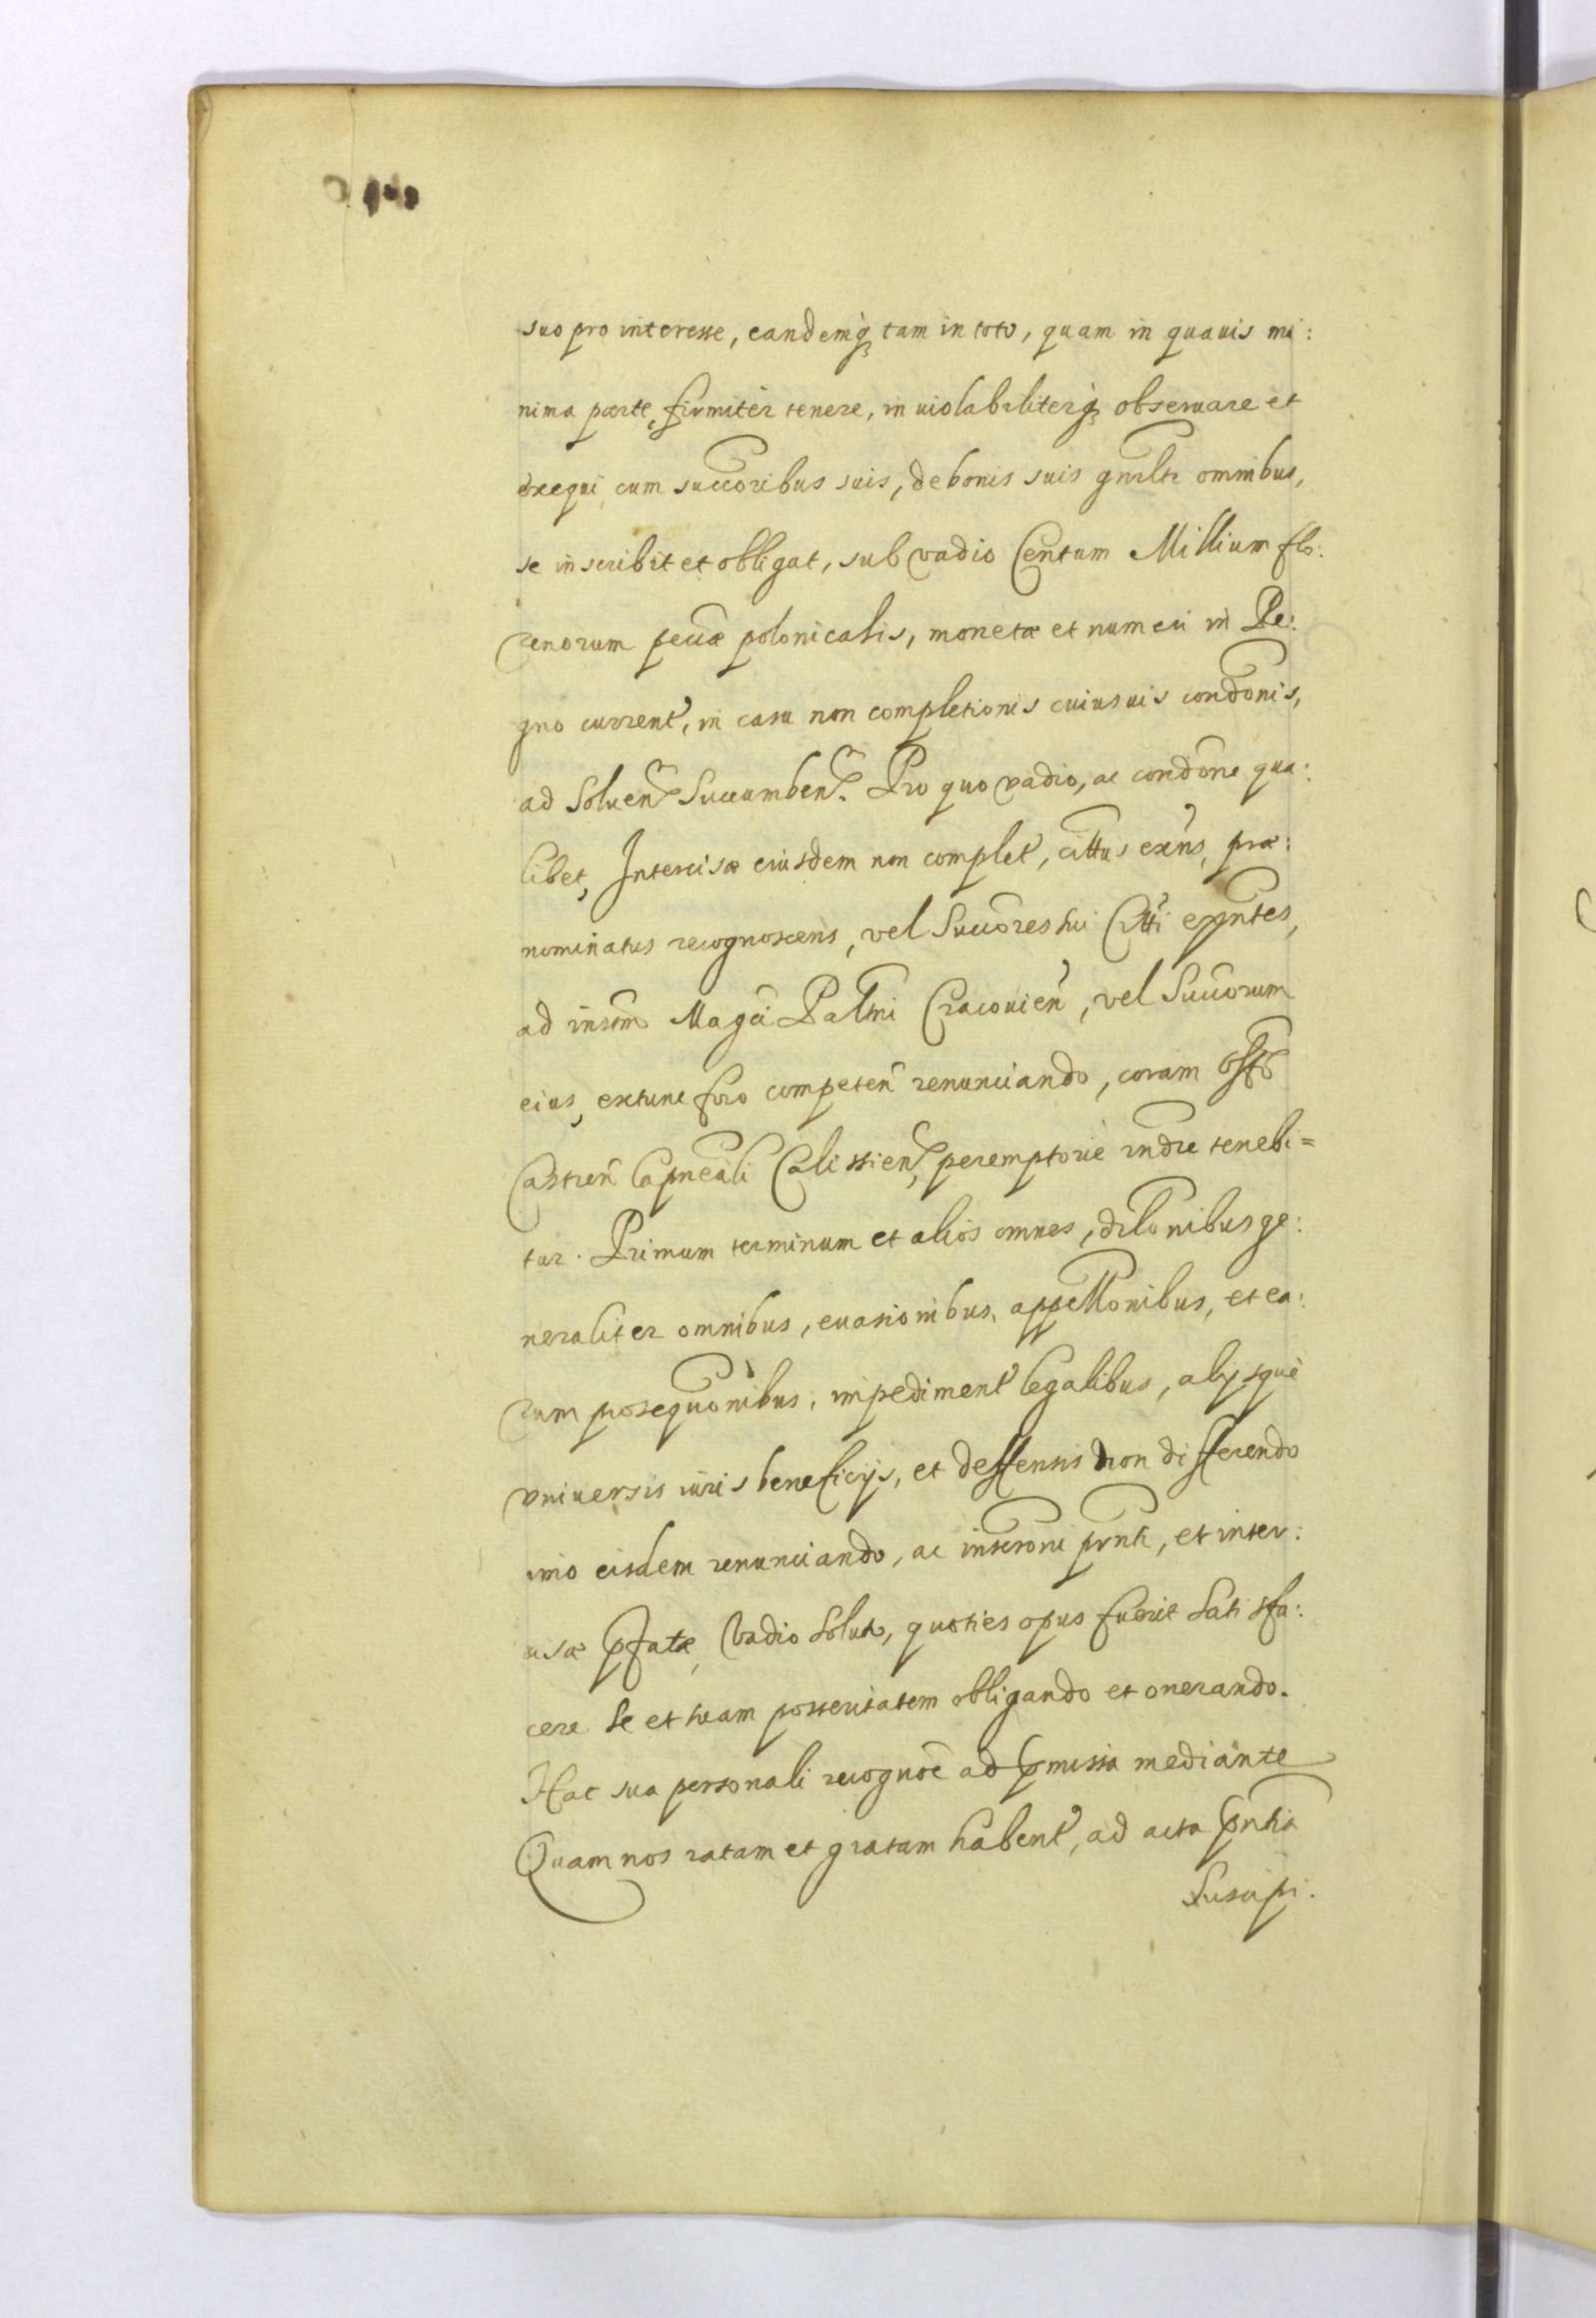 suo pro interesse, eandemq₃ tam in toto, quam in quauis mi:
nima parte, firmitèr tenere, inuiolabiliterq₃ obseruare et
exequi cum succoribus suis, de bonis suis gnrltr omnibus,
se inscribit et obligat, sub vadio Centum Millium flo:
renorum pecuæ polonicalis, monetæ et numeri in Re:
gno current, in casu non completionis cuiusuis condonis,
ad Soluen Succumben. Pro quo vadio, ac condone qua:
libet, Intercisæ eiusdem non complet, cittus exns, præ:
nominatus recognoscens, vel Succores sui Citti exntes,
ad instm Magci Paltni Cracouien, vel Succorum
eius, extunc foro competen renunciando, coram Offo
Castren Capneali Calissien, peremptoriè rndre tenebi=
tur. Primum terminum et alios omnes, dilonibus ge:
neraliter omnibus, euasionibus, appellonibus, et ea:
rum prosequonibus, impediment legalibus, alijsquè
vniuersis iuris beneficijs, et deffensis non differendo
imo eisdem renunciando, ac inscrone prnti, et inter:
cisæ pfatæ, Vadio Soluto, quoties opus fuerit Satisfa:
cere Se et suam posteritatem obligando et onerando.
Hac sua personali recognoe ad pmissa mediante
Quam nos ratam et gratam habent, ad acta pntia
Suscipi.